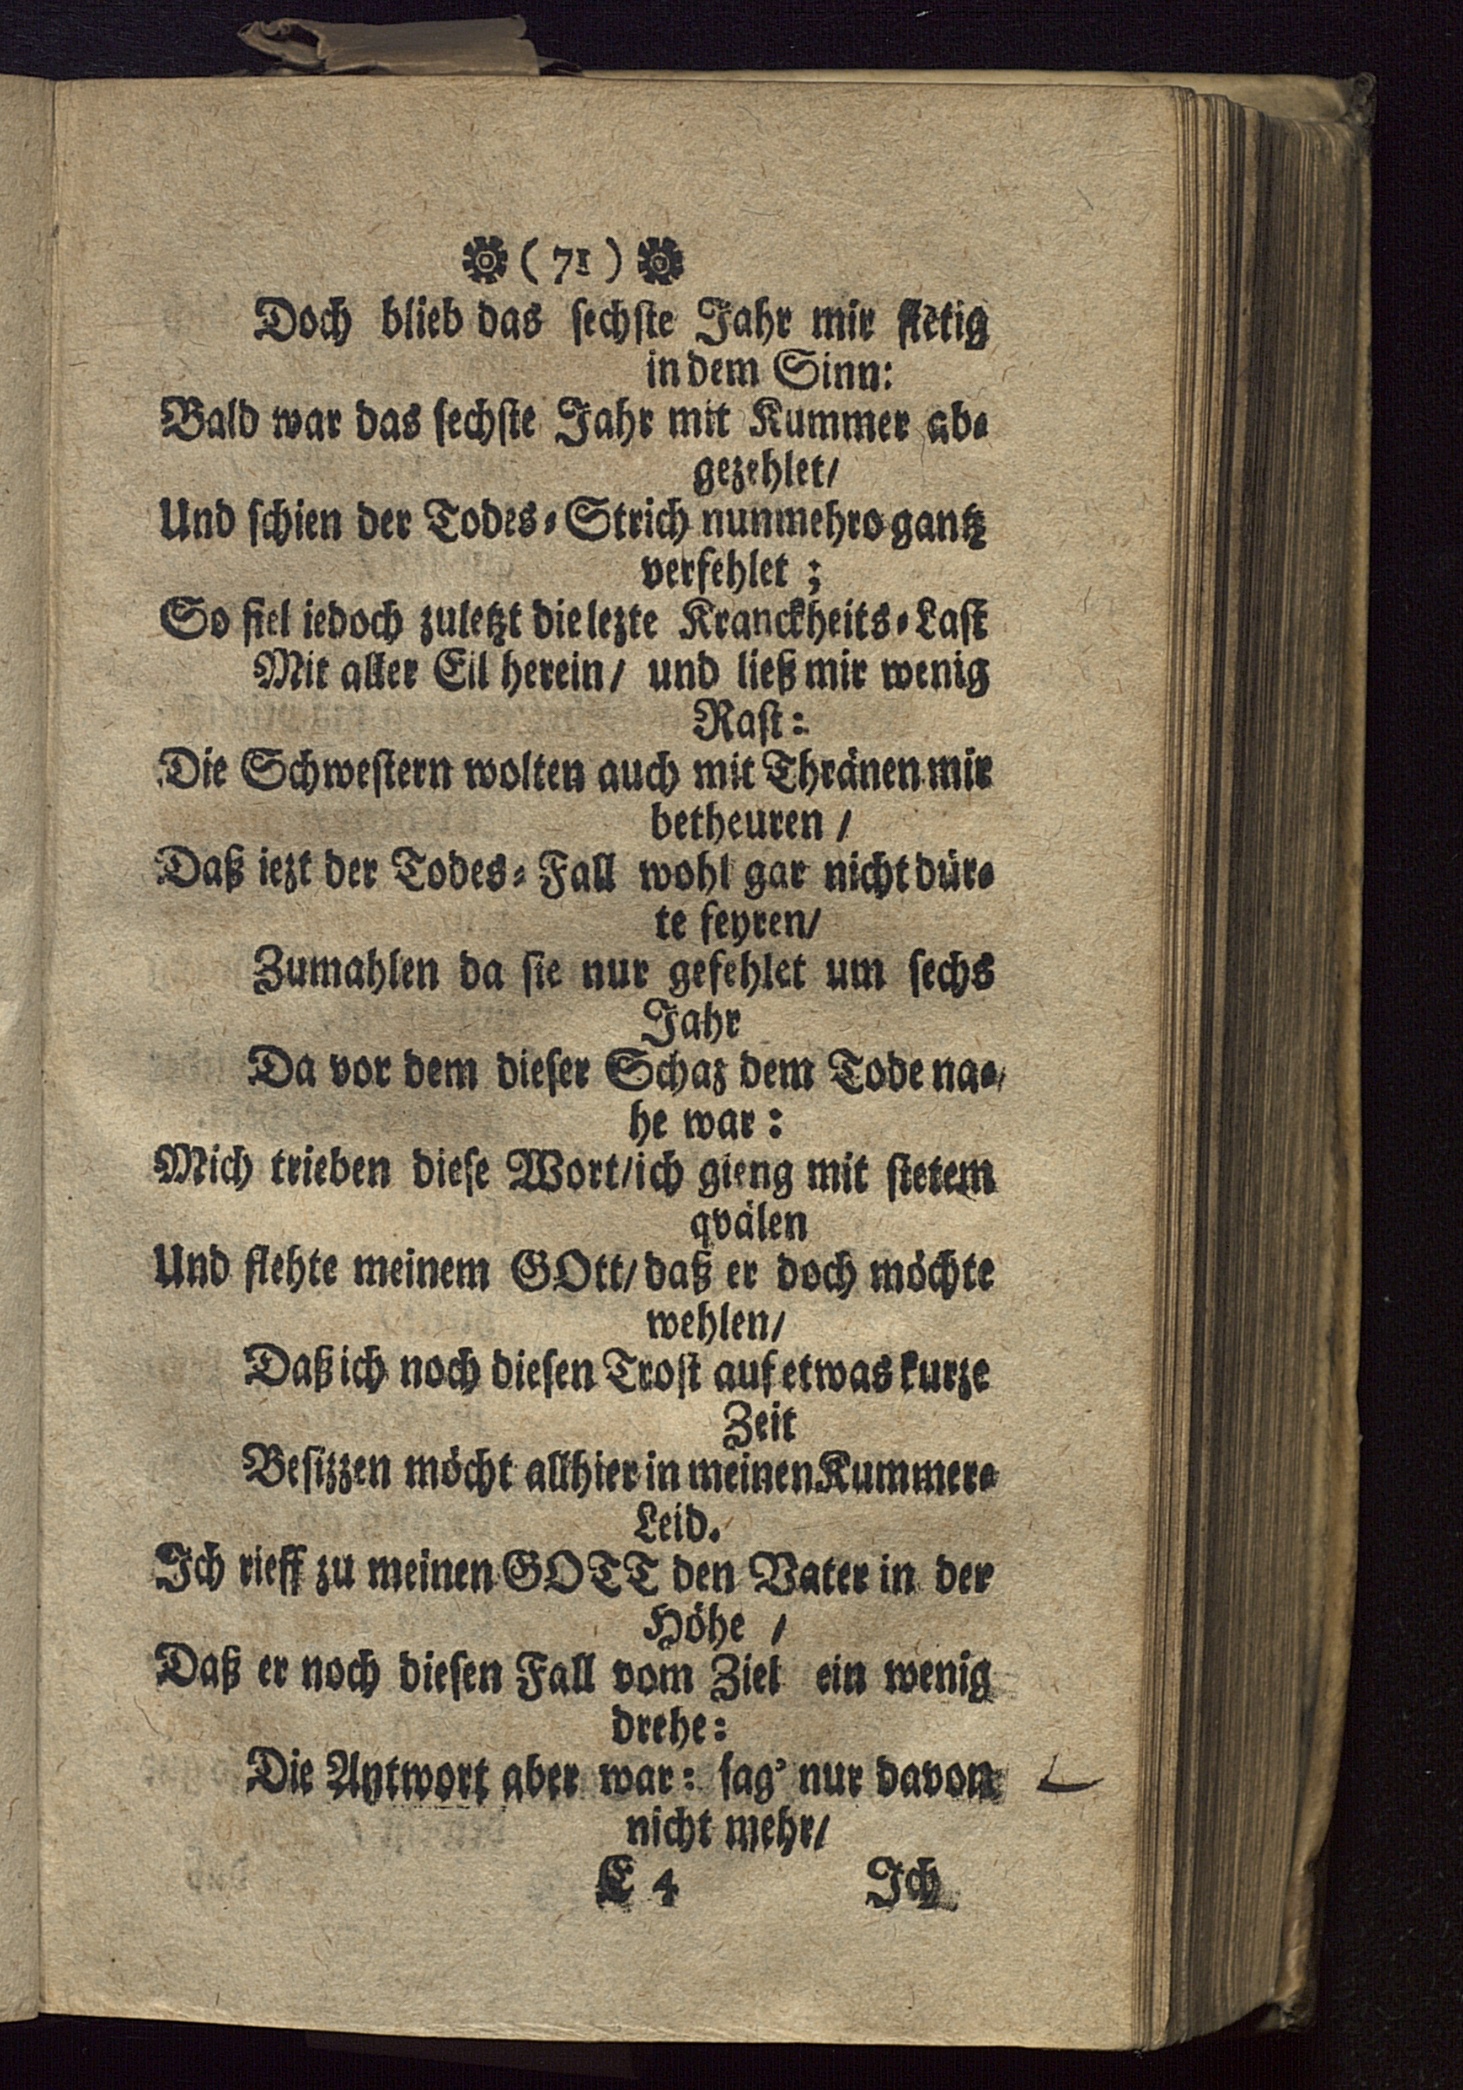 ( 71 )
Doch blieb das sechste Jahr mir stetig
in dem Sinn:
Bald war das sechste Jahr mit Kummer ab-
gezehlet/
Und schien der Todes-Strich nunmehro gantz
verfehlet ;
So fiel iedoch zuletzt die lezte Kranckheits-Last
Mit aller Eil herein/ und ließ mir wenig
Rast:
Die Schwestern wolten auch mit Thränen mir
betheuren /
Daß iezt der Todes-Fall wohl gar nicht dür-
te feyren/
Zumahlen da sie nur gefehlet um sechs
Jahr
Da vor dem dieser Schaz dem Tode na-
he war:
Mich trieben diese Wort/ich gieng mit stetem
qvälen
Und flehte meinem GOtt/daß er doch möchte
wehlen/
Daß ich noch diesen Trost auf etwas kurze
Zeit
Besizzen möcht allhier in meinen Kummer-
Leid.
Ich rieff zu meinen GOTT den Vater in der
Höhe /
Daß er noch diesen Fall vom Ziel ein wenig
drehe:
Die Antwort aber war: sag' nur davon
nicht mehr/
E 4 Ich